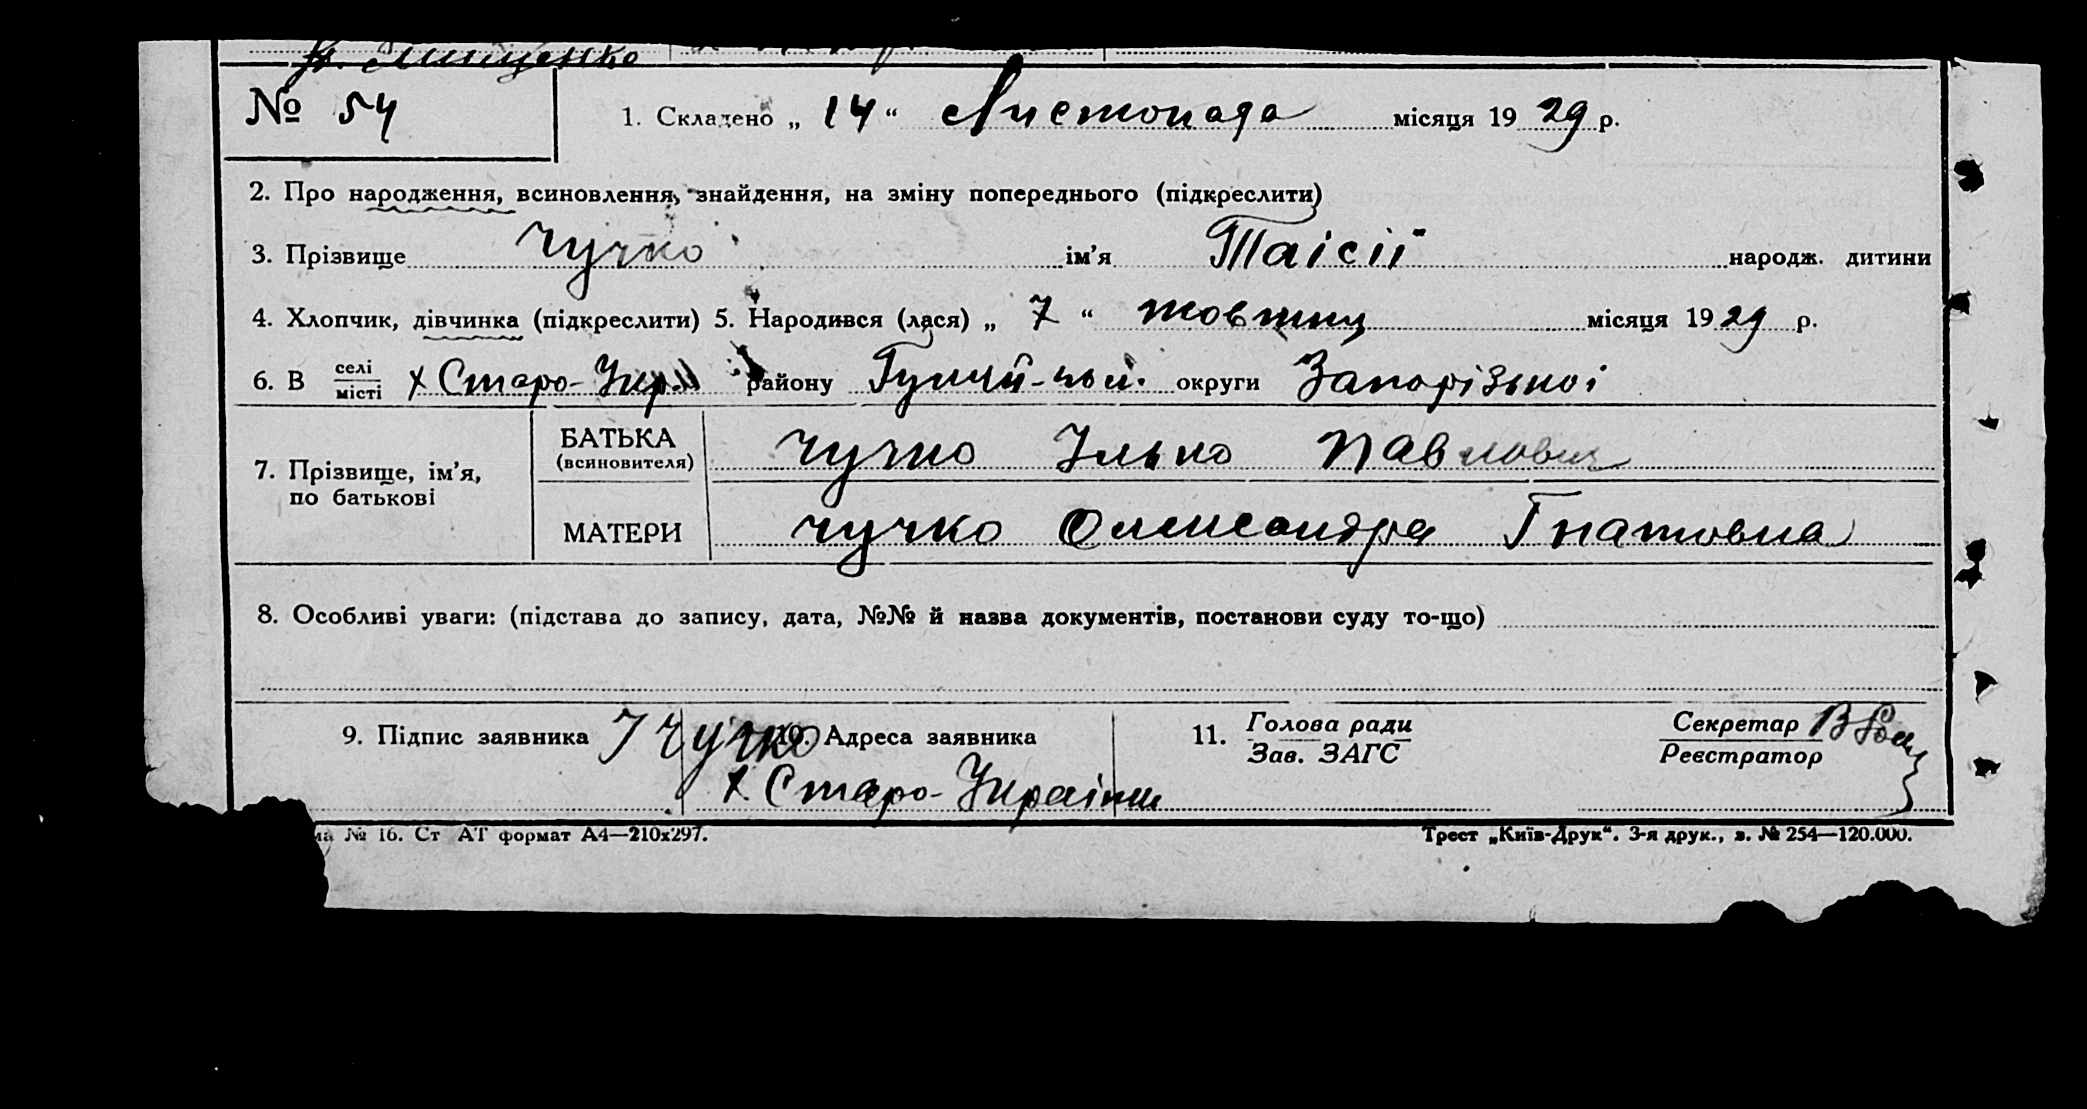 Мищенко
№ 54 1. Складено „ 14 “ Листопада місяця 1929 р.
2. Про народження, всиновлення, знайдення, на зміну попереднього (підкреслити)
3. Прізвище Чучко ім’я Таісії народж. дитини
4. Хлопчик, дівчинка (підкреслити) 5. Народився (лася) „ 7 “ жовтня місяця 1929 р.
6. В селі місті х Старо-Укр. району округи Запорізької
7. Прізвище, ім’я, по батькові
БАТЬКА (всиновителя) Чучко Ілько Павлович
МАТЕРИ Чучко Олександра Гнатовна
8. Особливі уваги: (підстава до запису, дата, №№ й назва документів, постанови суду то-що)
9. Підпис заявника І Чучко 10. Адреса заявника 11. Голова ради Зав. ЗАГС Секретар Реєстратор
х Старо-Украінка
№ 16. Ст АТ формат А4—210х297. Трест „Київ-Друк“. 3-я друк., з. № 254—120.000.